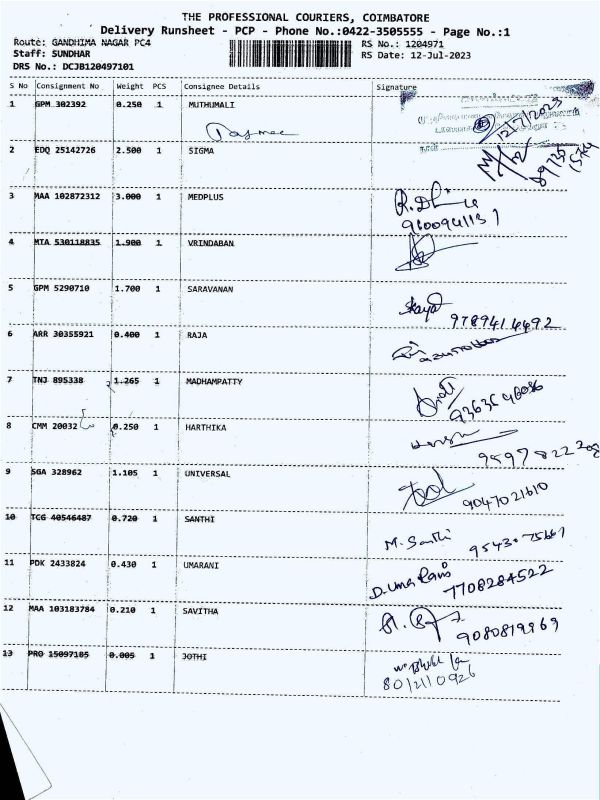 THE PROFESSIONAL COURIERS, COIMBATORE
Delivery Runsheet - PCP - Phone No.:0422-3505555 - Page No.:1
Route: GANDHIMA NAGAR PC4 RS No.: 1204971
Staff: SUNDHAR RS Date: 12-Jul-2023
DRS No.: DCJB120497101
S No Consignment No Weight PCS Consignee Details Signature
1 GPM 302392 0.250 1 MUTHUMALI
12/7/2023
2 EDQ 25142726 2.500 1 SIGMA
3 MAA 102872312 3.000 1 MEDPLUS
9600941131
4 MTA 530118835 1.900 1 VRINDABAN
5 GPM 5290710 1.700 1 SARAVANAN
9789414492
6 ARR 30355921 0.400 1 RAJA
7 TNJ 895338 1.265 1 MADHAMPATTY
8 CMM 20032 0.250 1 HARTHIKA
9 SGA 328962 1.105 1 UNIVERSAL
9047021610
10 TCG 40546487 0.720 1 SANTHI M. Santhi
11 PDK 2433824 0.430 1 UMARANI D. Uma Rani
7708284522
12 MAA 103183784 0.210 1 SAVITHA
9080819969
13 PRO 15097185 0.005 1 JOTHI
8012110926